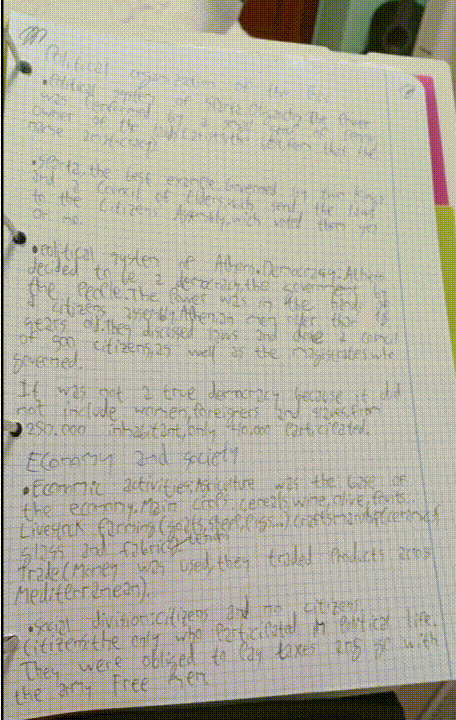 Political organization of the
•Political system of Sparta. Oligarchy. The Power
was performed by a small group of People
owner of the lands (aristoi, the best, from that the
name aristocracy)
•Sparta, the best example. Governed by two Kings
and a Council of Elders, wich send the laws
to the Citizens Assembly, wich voted them yes
or no.
•Political system of Athens. Democracy. Athens
decided to be a democracy, the government by
the people. The Power was in the hands of
a citizens assembly. Athenian men older than 18
years old. They discussed laws and chose a council
of 500 citizens, as well as the magistrates who
governed.
It was not a true democracy because it did
not include women, foreigners and slaves. From
250.000 inhabitant, only 40.000 participated.
Economy and society
•Economic activities. Agriculture was the base of
the economy. Main crops: cereals, wine, olive, fruits..
Livestock farming (goats, sheep, pigs...) craftsmanship (ceramics,
glass and fabrics)
Trade (Money was used, they traded Products across
Mediterranean).
•Social division: citizens and no citizens.
Citizens the only who Participated in Political life.
They were obliged to Pay taxes and go with
the army Free men